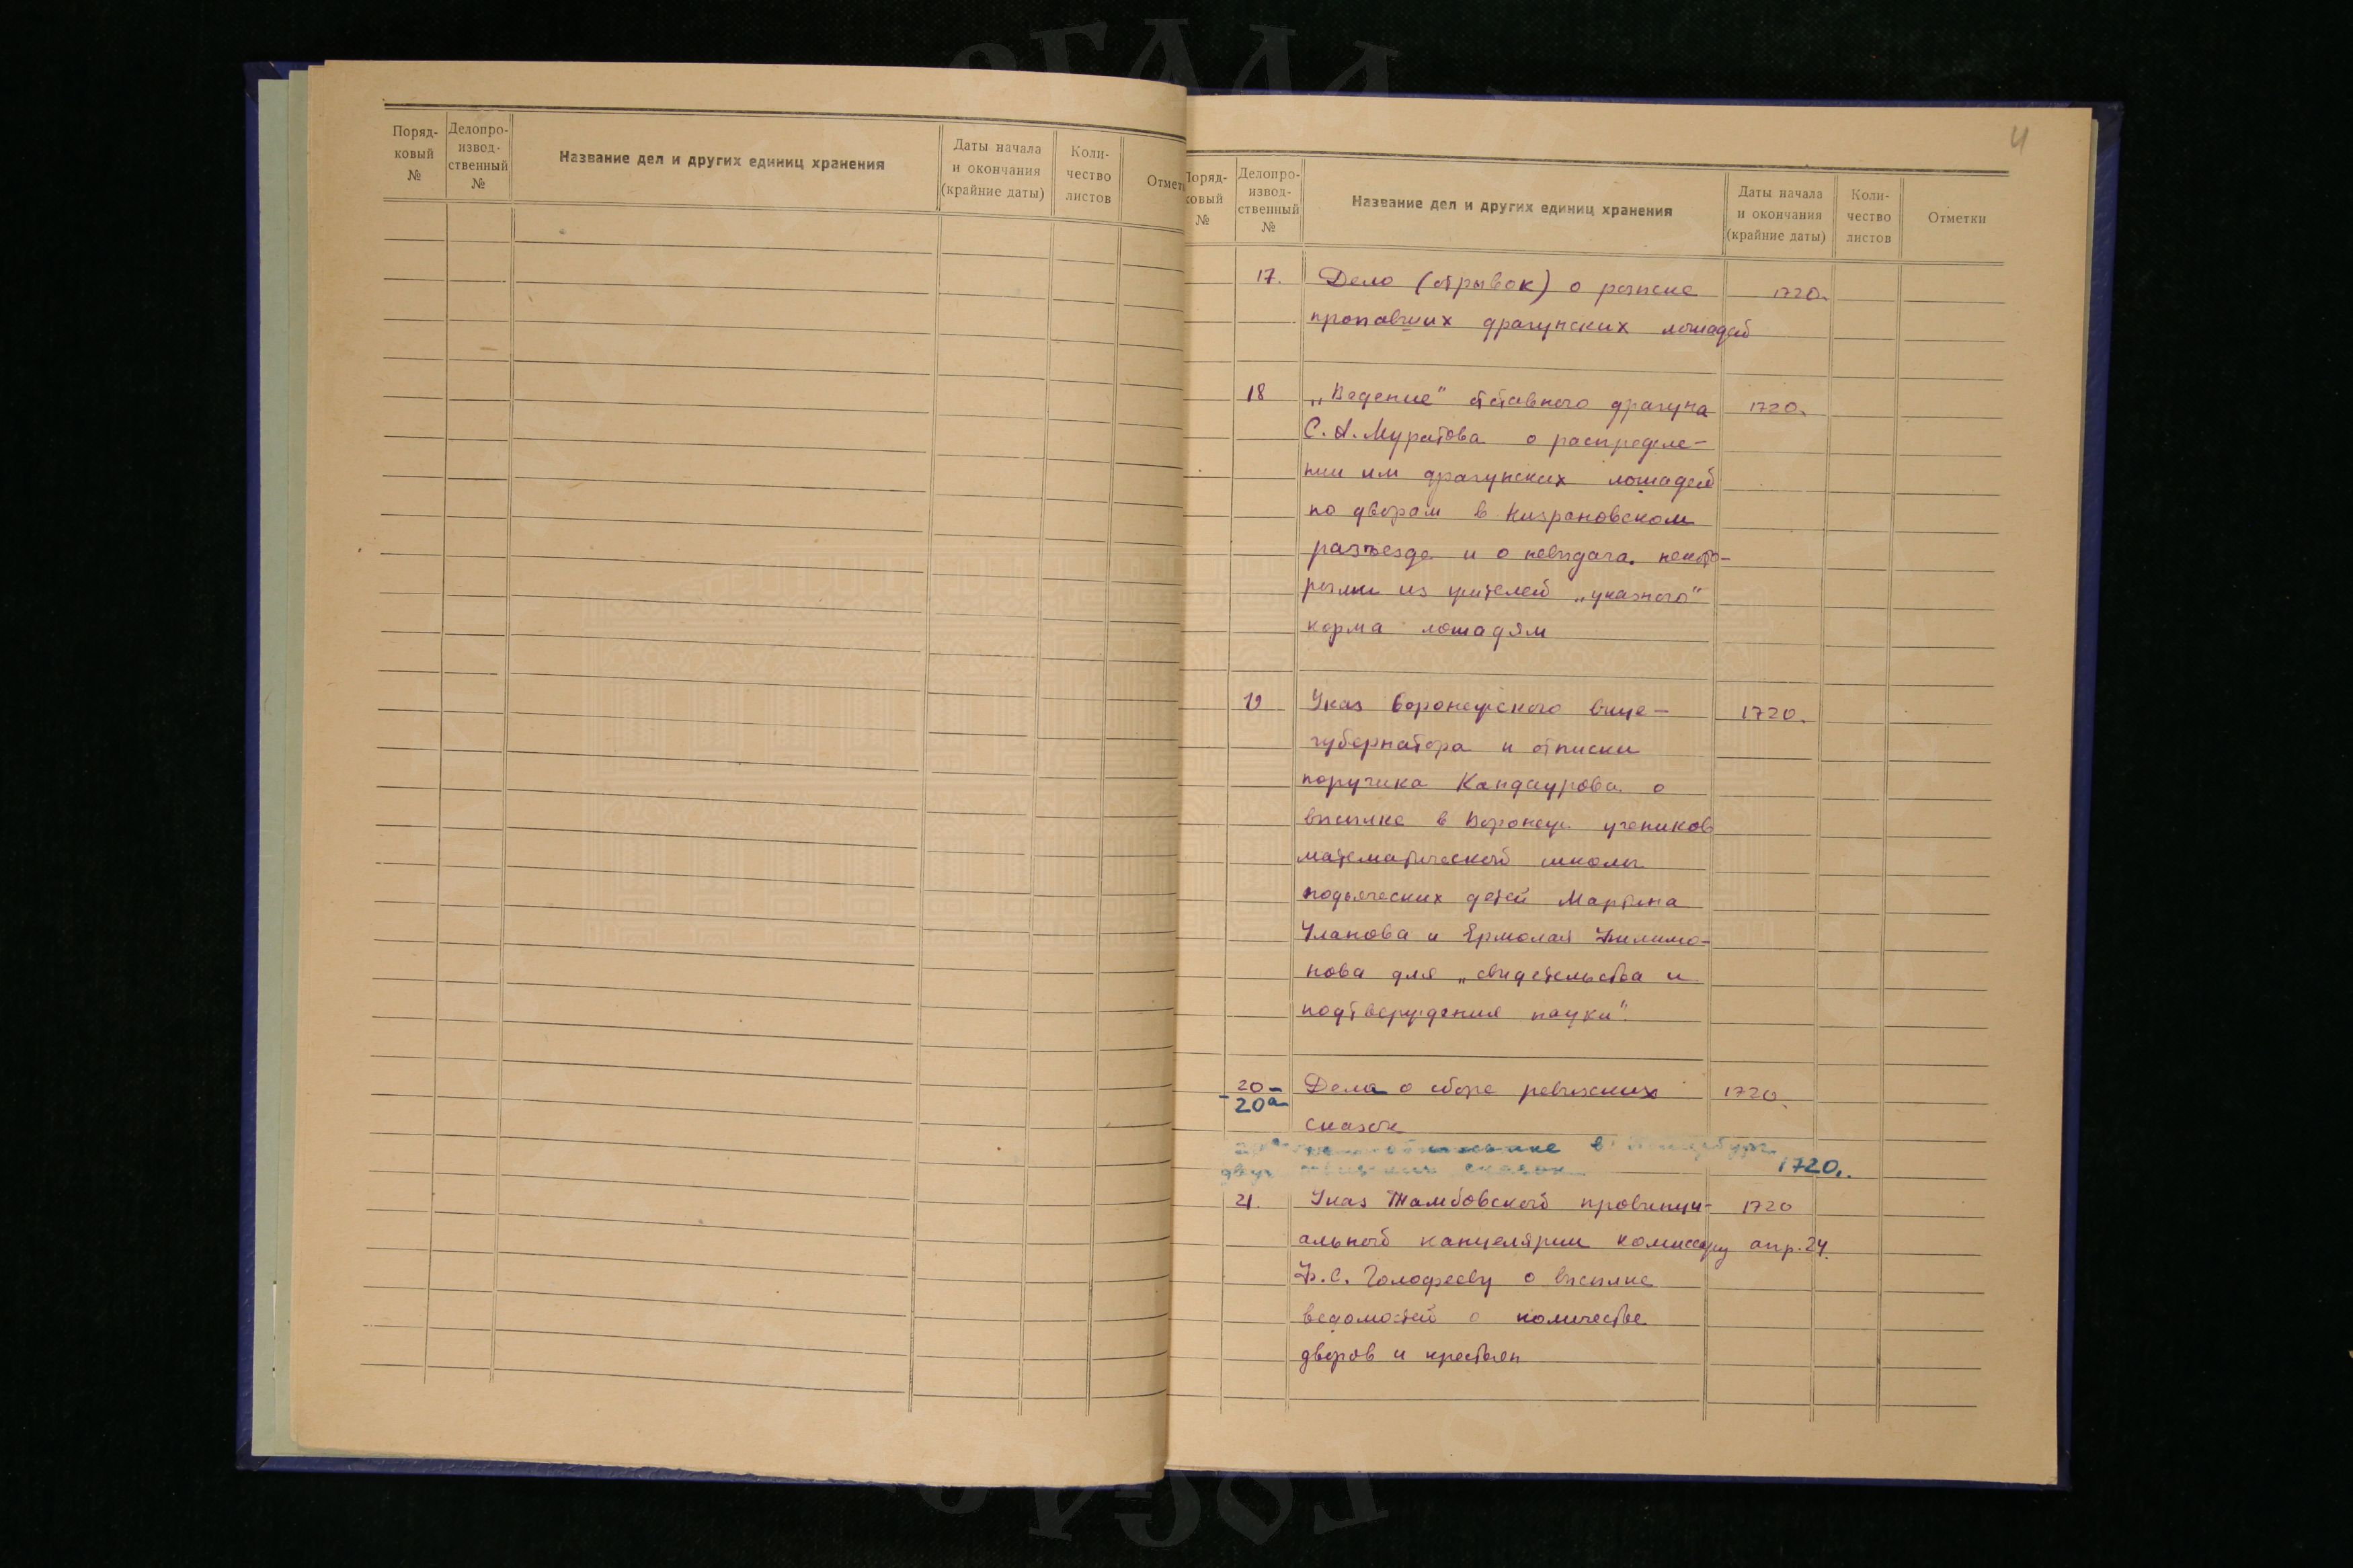 Поряд-
ковый
№
Делопро-
извод-
ственный
№
Название дел и других единиц хранения
Даты начала
и окончания
(крайние даты)
Коли-
чество
листов
Отмет
4
Поряд-
ковый
№
Делопро-
извод-
ственный
№
Название дел и других единиц хранения
Даты начала
и окончания
(крайние даты)
Коли-
чество
листов
Отметки
17. Дело (отрывок) о розыске 1720.
пропавших драгунских лошадей
18 „Ведение" отставного драгуна 1720.
С. А. Муратова о распределе-
нии им драгунских лошадей
по дворам в
разъезде и о невыдаче некото-
рыми из жителей „указного"
корма лошадям
19 Указ Воронежского вице- 1720.
губернатора и отписки
поручика Кандаурова о
высылке в Воронеж учеников
математической школы
подьяческих детей Мартина
Уланова и Ермолая Филимо-
нова для „свидетельства и
подтверждения науки".
20- Дела о сборе ревизских 1720.
-20а
сказок
в
двух сказок 1720.
21. Указ Тамбовской провинци- 1720
альной канцелярии комиссару апр. 24.
Ф. С. Голофееву о высылке
ведомостей о количестве
дворов и крестьян